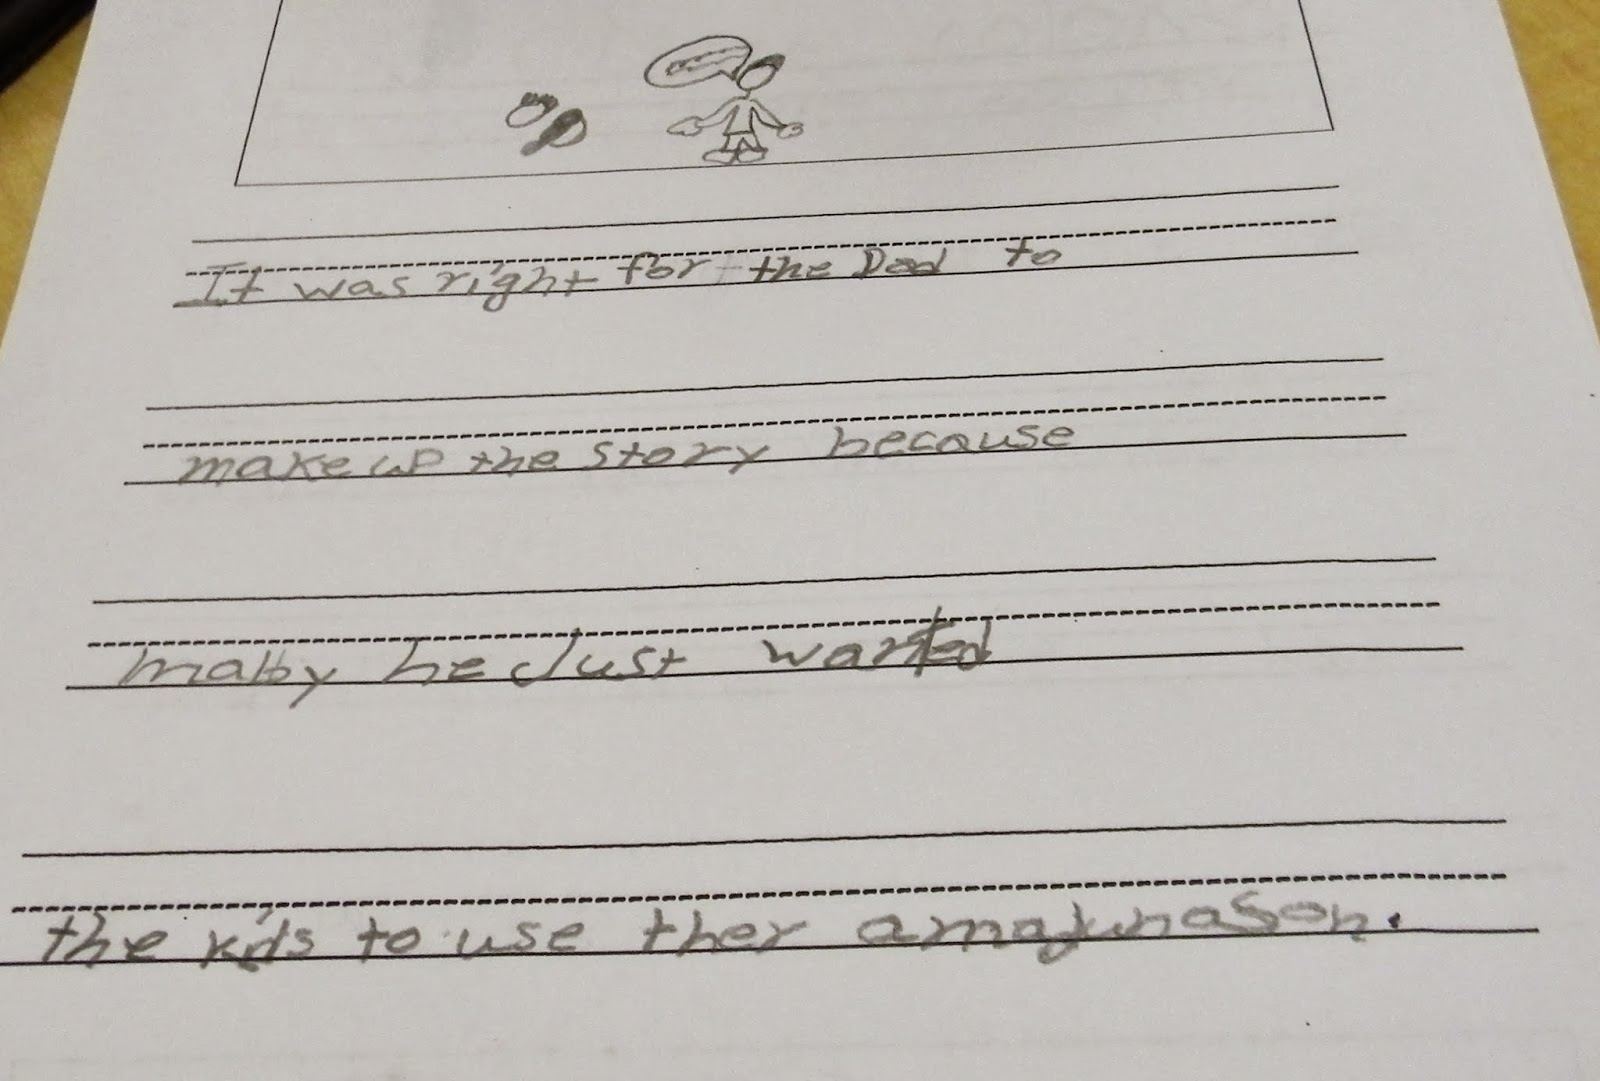 It was right for the Dad to
make up the story because
malby he Just wanted
the kids to use ther amajunason.